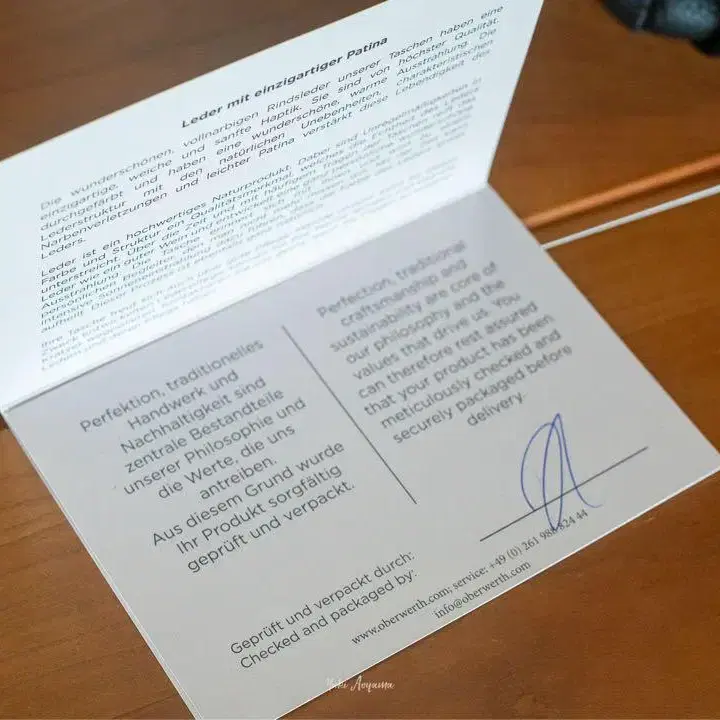 Leder mit einzigartiger Patina
Die wunderschönen, vollnarbigen Rindsleder unserer Taschen haben eine
einzigartige, weiche und sanfte Haptik. Sie sind von höchster Qualität,
durchgefärbt und haben eine wunderschöne, warme Ausstrahlung. Die
Lederstruktur mit den natürlichen Unebenheiten, charakteristischen
Narbenverletzungen und leichter Patina verstärkt diese Lebendigkeit des
Leders.
Leder ist ein hochwertiges Naturprodukt. Dabei sind Unregelmäßigkeiten in
Farbe und Struktur ein Qualitätsmerkmal, welches die Echtheit des Leders
unterstreicht. Über die Zeit und mit häufigem Tragen der Tasche reift das
Leder wie ein guter Wein und entwickelt eine
Perfektion, traditionelles
Handwerk und
Nachhaltigkeit sind
zentrale Bestandteile
unserer Philosophie und
die Werte, die uns
antreiben.
Aus diesem Grund wurde
Ihr Produkt sorgfältig
geprüft und verpackt.
Perfection, traditional
craftsmanship and
sustainability are core of
our philosophy and the
values that drive us. You
can therefore rest assured
that your product has been
meticulously checked and
securely packaged before
delivery.
Geprüft und verpackt durch:
Checked and packaged by:
www.oberwerth.com; service: +49 (0) 261 988 824 44
info@oberwerth.com
Yuki Aoyama